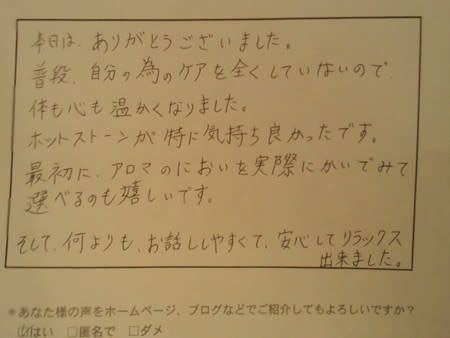 本日は、ありがとうございました。
普段、自分の為のケアを全くしていないので、
体も心も温かくなりました。
ホットストーンが特に気持ち良かったです。
最初に、アロマのにおいを実際にかいでみて
選べるのも嬉しいです。
そして、何よりも、お話ししやすくて、安心してリラックス
出来ました。
*あなた様の声をホームページ、ブログなどでご紹介してもよろしいですか?
☑はい □匿名で □ダメ